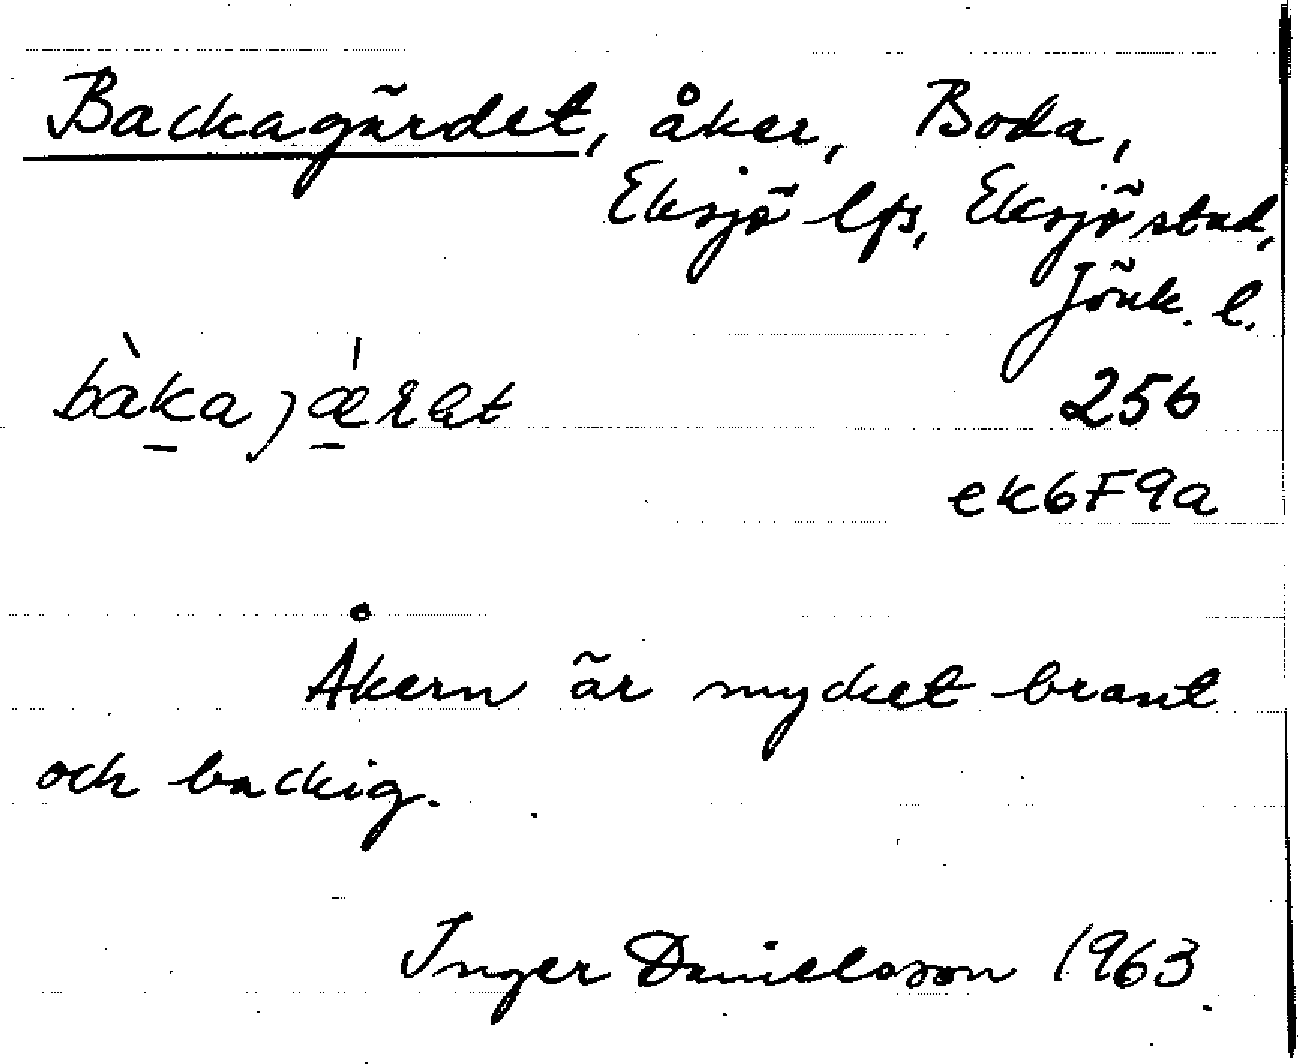 Backagärdet, åker, Boda,
Eksjö lfs, Eksjö stad,
Jönk. l.
256
ek6F9a
Åkern är mycket brant
och backig.
Inger Danielsson 1963